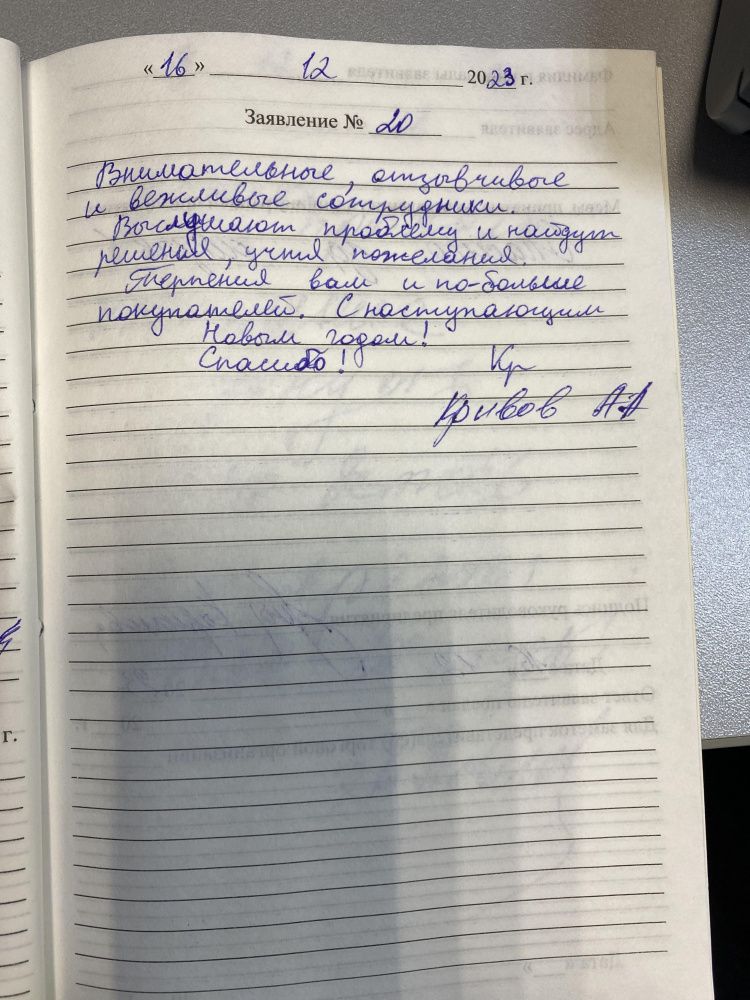 «16» 12 2023 г.
Заявление № 20
Внимательные, отзывчивые
и вежливые сотрудники.
Выслушают проблему и найдут
решения, учтя пожелания.
Терпения вам и по-больше
покупателей. С наступающим
Новым годом!
Спасибо! Кр
Кривов АА
г.